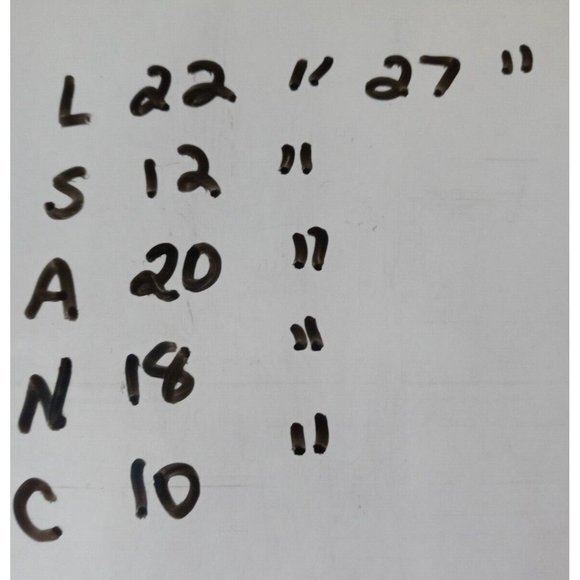 L 22 " 27 "
S 12 "
A 20 "
N 18 "
C 10 "